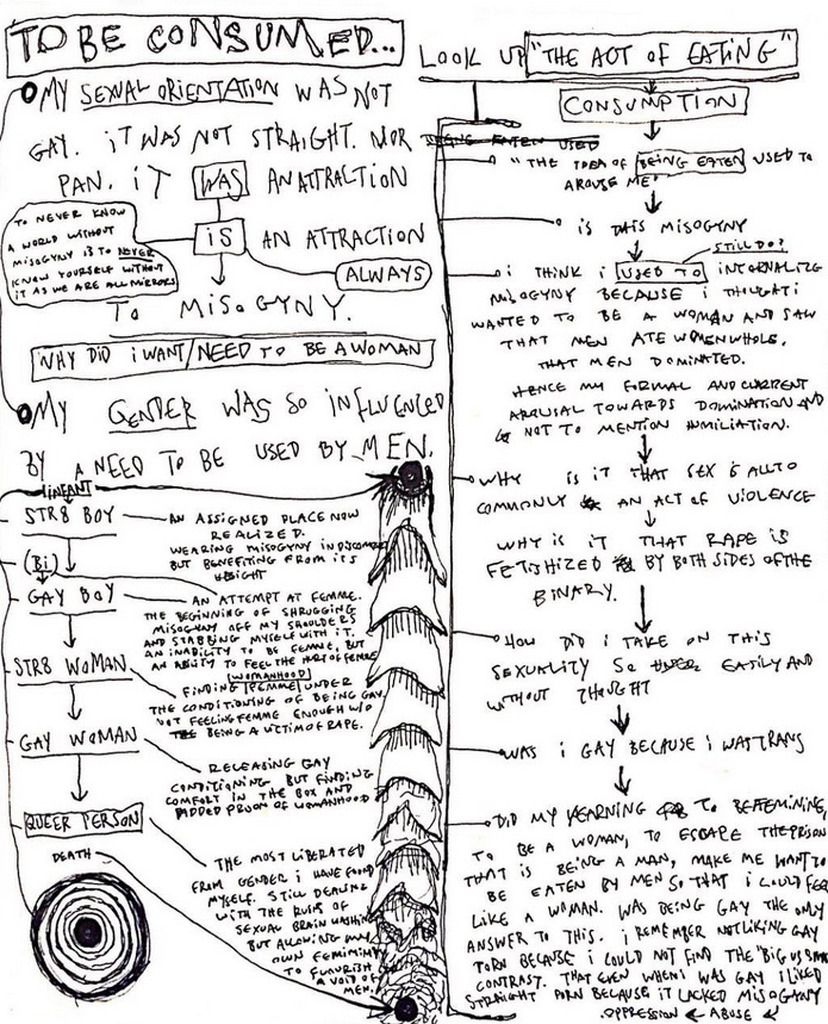 TO BE CONSUMED...
MY SEXUAL ORIENTATION WAS NOT
GAY. iT WAS NOT STRAIGHT. NOR
PAN. iT WAS AN ATTRACTION
TO NEVER KNOW
A WORLD WITHOUT
MISOGYNY IS TO NEVER
KNOW YOURSELF WITHOUT
IT AS WE ARE ALL MIRRORS
IS AN ATTRACTION
ALWAYS
TO MISOGYNY.
WHY DID i WANT/NEED TO BE A WOMAN
MY GENDER WAS SO INFLUENCED
BY A NEED TO BE USED BY MEN.
INFANT
STR8 BOY
AN ASSIGNED PLACE NOW
REALIZED.
WEARING MISOGYNY IN DISCOMFORT
BUT BENEFITING FROM ITS
WEIGHT
(Bi)
GAY BOY
AN ATTEMPT AT FEMME.
THE BEGINNING OF SHRUGGING
MISOGYNY OFF MY SHOULDERS
AND STABBING MYSELF WITH IT.
AN INABILITY TO BE FEMME, BUT
AN ABILITY TO FEEL THE HURT OF FEMME
STR8 WOMAN
WOMANHOOD
FINDING FEMME UNDER
THE CONDITIONING OF BEING GAY.
NOT FEELING FEMME ENOUGH W/O
BEING A VICTIM OF RAPE.
GAY WOMAN
RELEASING GAY
CONDITIONING BUT FINDING
COMFORT IN THE BOX AND
ADDED PROOF OF WOMANHOOD
QUEER PERSON
THE MOST LIBERATED
FROM GENDER i HAVE FOUND
MYSELF. STILL DEALING
WITH THE RUINS OF
SEXUAL BRAIN WASHING
BUT ALLOWING MY
OWN FEMININITY
TO FLOURISH
A VOID OF
MEN.
DEATH
LOOK UP "THE ACT OF EATING"
CONSUMPTION
BEING EATEN USED
"THE IDEA OF BEING EATEN USED TO
AROUSE ME"
IS THIS MISOGYNY
STILL DO?
i THINK i USED TO INTERNALIZE
MISOGYNY BECAUSE i THOUGHT i
WANTED TO BE A WOMAN AND SAW
THAT MEN ATE WOMEN WHOLE.
THAT MEN DOMINATED.
HENCE MY FORMAL AND CURRENT
AROUSAL TOWARDS DOMINATION AND
NOT TO MENTION HUMILIATION.
WHY IS iT THAT SEX IS ALL TO
COMMONLY AN ACT OF VIOLENCE
WHY IS iT THAT RAPE IS
FETISHIZED BY BOTH SIDES OF THE
BINARY.
HOW DID i TAKE ON THIS
SEXUALITY SO EASILY AND
WITHOUT THOUGHT
WAS i GAY BECAUSE i WAS TRANS
DID MY YEARNING TO BE FEMININE,
TO BE A WOMAN, TO ESCAPE THE PRISON
THAT IS BEING A MAN, MAKE ME WANT TO
BE EATEN BY MEN SO THAT i COULD FEEL
LIKE A WOMAN. WAS BEING GAY THE ONLY
ANSWER TO THIS. i REMEMBER NOT LIKING GAY
PORN BECAUSE i COULD NOT FIND THE "BIG VS SMALL
CONTRAST. THAT EVEN WHEN i WAS GAY i LIKED
STRAIGHT PORN BECAUSE IT LACKED MISOGYNY
OPPRESSION ABUSE